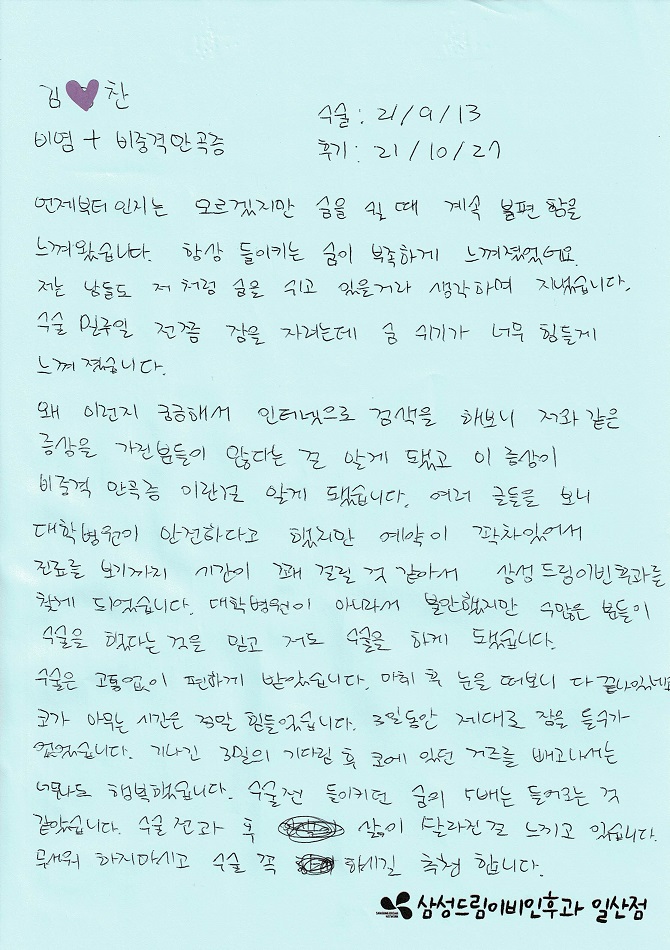 김 찬
수술 : 21/9/13
비염 + 비중격만곡증
후기 : 21/10/27
언제부터인지는 모르겠지만 숨을 쉴 때 계속 불편함을
느껴왔습니다. 항상 들이키는 숨이 부족하게 느껴졌었네요.
저는 남들도 저처럼 숨을 쉬고 있을거라 생각하며 지냈습니다.
수술 일주일 전쯤 잠을 자려는데 숨 쉬기가 너무 힘들게
느껴졌습니다.
왜 이런지 궁금해서 인터넷으로 검색을 해보니 저와 같은
증상을 가진분들이 많다는 걸 알게 됐고 이 증상이
비중격 만곡증 이란걸 알게 됐습니다. 여러 글들을 보니
대학병원이 안전하다고 했지만 예약이 꽉차있어서
진료를 보기까지 시간이 꽤 걸릴 것 같아서 삼성드림이빈후과를
찾게 되었습니다. 대학병원이 아니라서 불안했지만 수많은 분들이
수술을 했다는 것을 믿고 저도 수술을 하게 됐습니다.
수술은 고통없이 편하게 받았습니다. 마취 후 눈을 떠보니 다 끝나있네요
코가 아무는 시간은 정말 힘들었습니다. 3일동안 제대로 잠을 들수가
없었습니다. 기나긴 3일의 기다림 후 코에 있던 거즈를 빼고나서는
너무나도 행복했습니다. 수술전 들이키던 숨의 5배는 들어오는 것
같았습니다. 수술 전과 후 삶이 달라진걸 느끼고 있습니다.
무서워 하지마시고 수술 꼭 하시길 추천 합니다.
삼성드림이비인후과 일산점